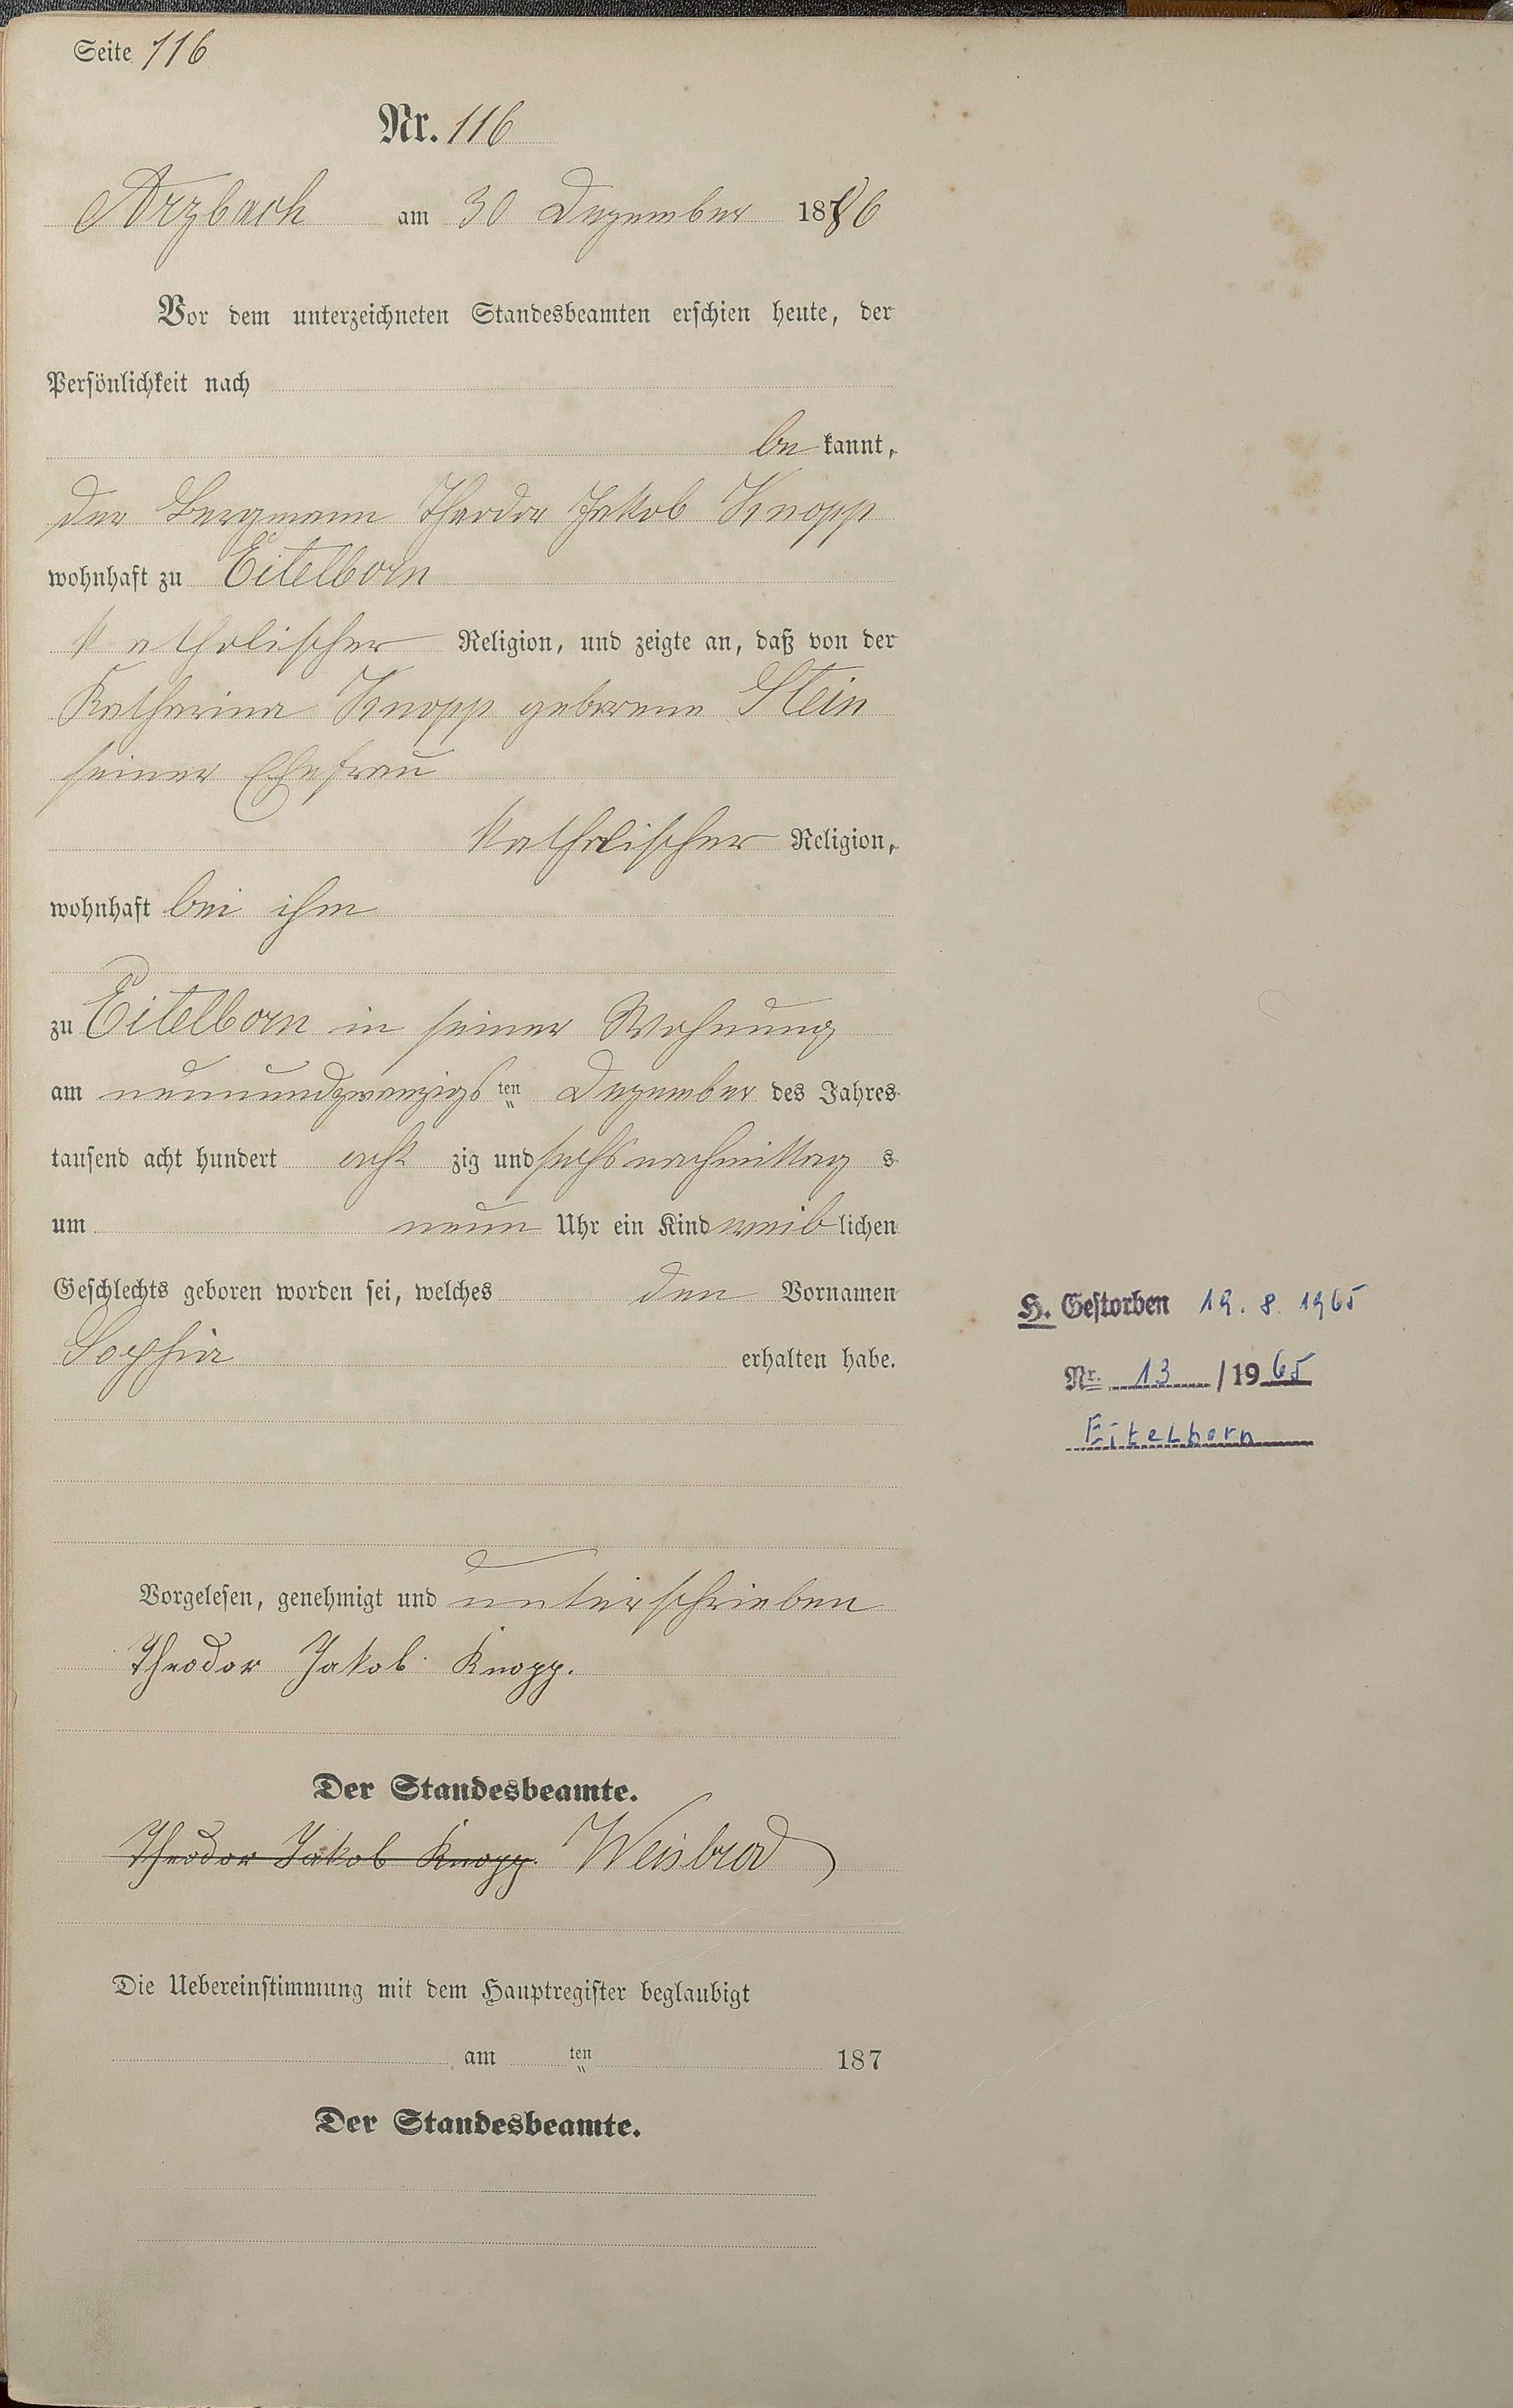 Seite 116
Nr. 116
Arzbach am 30 Dezember 1886
Vor dem unterzeichneten Standesbeamten erschien heute, der
Persönlichkeit nach
be kannt,
der Bergmann Theodor Jakob Knopp
wohnhaft zu Eitelborn
katholischer Religion, und zeigte an, daß von der
Katharina Knopp geborene Stein
seiner Ehefrau
katholischer Religion,
wohnhaft bei ihm
zu Eitelborn in seiner Wohnung
am neunundzwanzigs ten Dezember des Jahres
tausend acht hundert acht zig und sechs nachmittag s
um neun Uhr ein Kind weib lichen
Geschlechts geboren worden sei, welches den Vornamen
Sophia
erhalten habe.
H. Gestorben 19. 8. 1965
Nr. 13 / 19 65
Eitelborn
Vorgelesen, genehmigt und unterschrieben
Theodor Jakob Knopp.
Der Standesbeamte.
Theodor Jakob Knopp. Weisbrod
Die Uebereinstimmung mit dem Hauptregister beglaubigt
am ten 187
Der Standesbeamte.